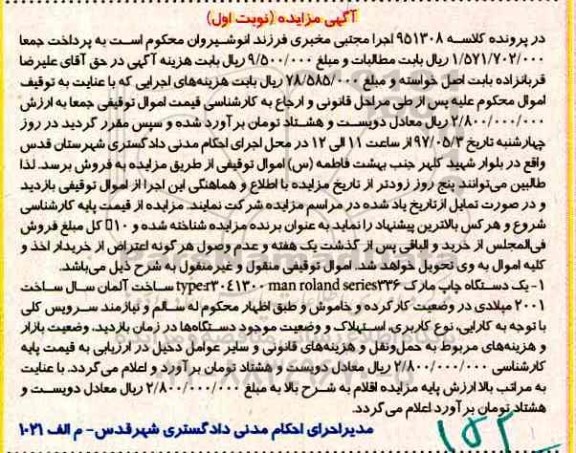 آگهی مزایده (نوبت اول)
در پرونده کلاسه ۹۵۱۳۰۸ اجرا مجتبی مخبری فرزند انوشیروان محکوم است به پرداخت جمعا
۱/۵۷۱/۷۰۲/۰۰۰ ریال بابت مطالبات و مبلغ ۹/۵۰۰/۰۰۰ ریال بابت هزینه آگهی در حق آقای علیرضا
قربانزاده بابت اصل خواسته و مبلغ ۷۸/۵۸۵/۰۰۰ ریال بابت هزینه‌های اجرایی که با عنایت به توقیف
اموال محکوم علیه پس از طی مراحل قانونی و ارجاع به کارشناسی قیمت اموال توقیفی جمعا به ارزش
۲/۸۰۰/۰۰۰/۰۰۰ ریال معادل دویست و هشتاد تومان برآورد شده و سپس مقرر گردید در روز
چهارشنبه تاریخ ۹۷/۰۵/۳ از ساعت ۱۱ الی ۱۲ در محل اجرای احکام مدنی دادگستری شهرستان قدس
واقع در بلوار شهید کلهر جنب بهشت فاطمه (س) اموال توقیفی از طریق مزایده به فروش برسد. لذا
طالبین می‌توانند پنج روز زودتر از تاریخ مزایده با اطلاع و هماهنگی این اجرا از اموال توقیفی بازدید
و در صورت تمایل از تاریخ یاد شده در مراسم مزایده شرکت نمایند. مزایده از قیمت پایه کارشناسی
شروع و هر کس بالاترین پیشنهاد را نماید به عنوان برنده مزایده شناخته شده و ۱۰٪ کل مبلغ فروش
فی‌المجلس از خرید و الباقی پس از گذشت یک هفته و عدم وصول هر گونه اعتراض از خریدار اخذ و
کلیه اموال به وی تحویل خواهد شد. اموال توقیفی منقول و غیرمنقول به شرح ذیل می‌باشد.
۱- یک دستگاه چاپ مارک type:۲۳۰۴۱۳۰۰ man roland series۳۳۶ ساخت آلمان سال ساخت
۲۰۰۱ میلادی در وضعیت کارکرده و خاموش و طبق اظهار محکوم له سالم و نیازمند سرویس کلی
با توجه به کارایی، نوع کاربری، استهلاک و وضعیت موجود دستگاه‌ها در زمان بازدید، وضعیت بازار
و هزینه‌های مربوط به حمل‌ونقل و هزینه‌های قانونی و سایر عوامل دخیل در ارزیابی به قیمت پایه
کارشناسی ۲/۸۰۰/۰۰۰/۰۰۰ ریال معادل دویست و هشتاد تومان برآورد و اعلام می‌گردد. با عنایت
به مراتب بالا ارزش پایه مزایده اقلام به شرح بالا به مبلغ ۲/۸۰۰/۰۰۰/۰۰۰ ریال معادل دویست و
هشتاد تومان برآورد اعلام می‌گردد.
مدیر اجرای احکام مدنی دادگستری شهرقدس- م الف ۱۰۲۱